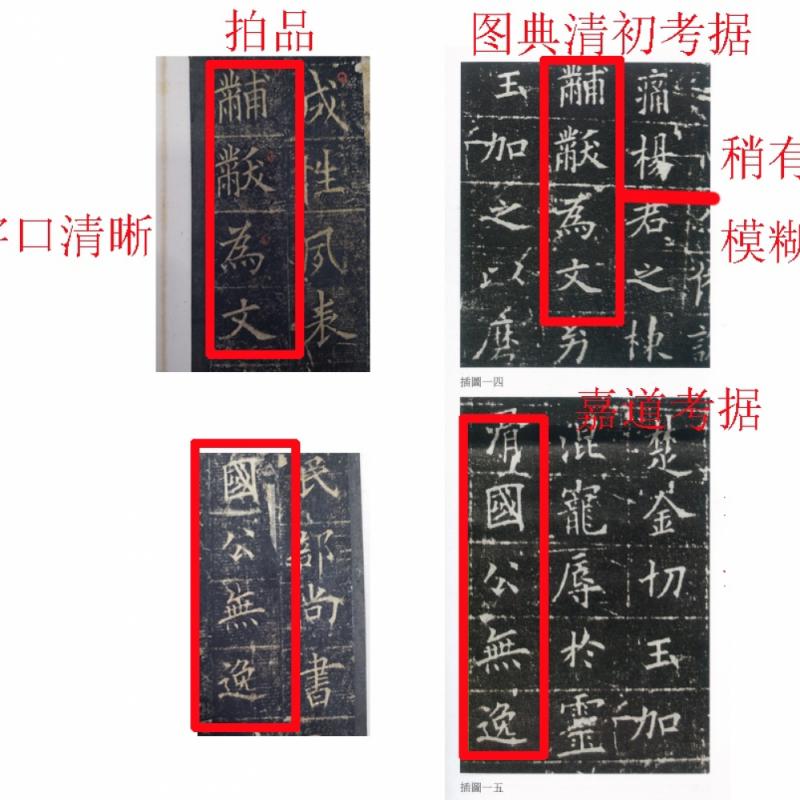 拍品
图典清初考据
成性夙表
黼黻為文
痛楊君之棟
黼黻為文
玉加之以
口清晰
稍有
模糊
插圖一四
嘉道考据
民部尚書
國公無逸
楚金切玉加
混寵辱於靈
滑國公無逸
插圖一五